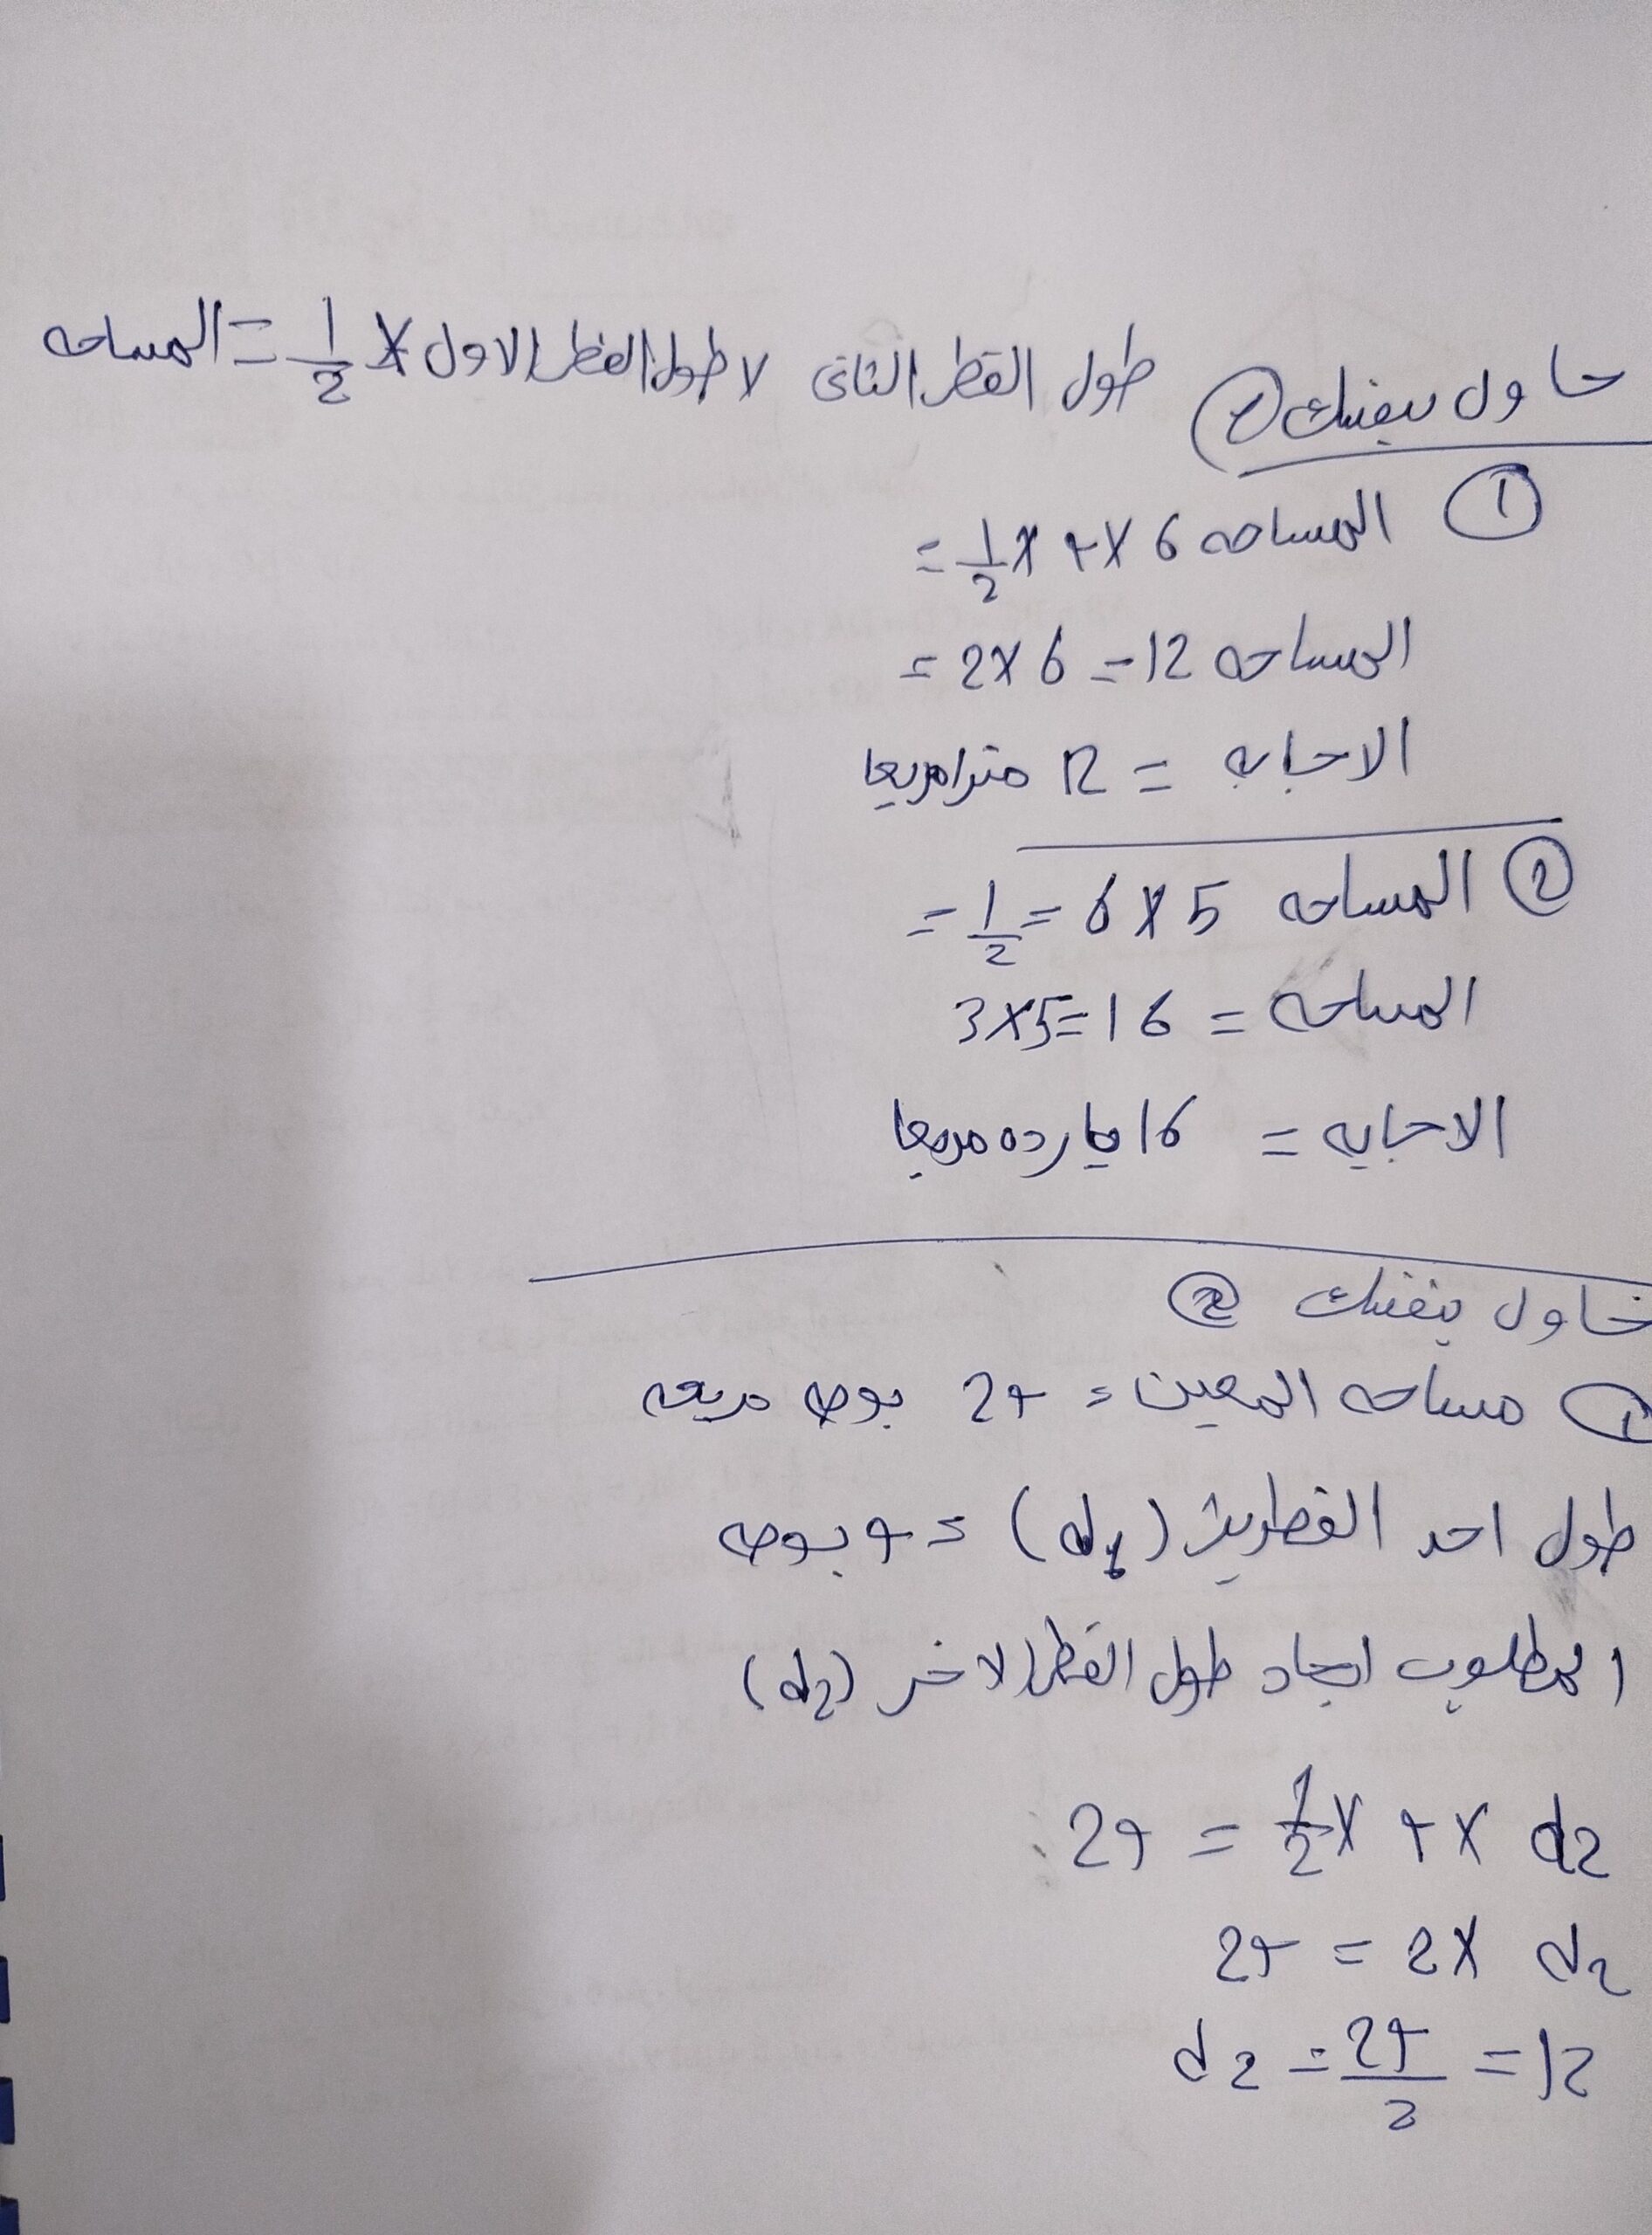 حاول بنفسك ①
المساحه = 1/2 X طول القطر الاول X طول القطر الثانى
① المساحه = 1/2 X 4 X 6
المساحه = 2 X 6 = 12
الاجابه = 12 مترا مربعا
② المساحه = 1/2 = 6 X 5
المساحه = 3X5=16
الاجابه = 16 يارده مربعا
حاول بنفسك ②
① مساحه المعين = 24 بوصه مربعه
طول احد القطرين (d1) = 4 بوصه
المطلوب ايجاد طول القطر الاخر (d2)
24 = 1/2 X 4 X d2
24 = 2X d2
d2 = 24/2 = 12